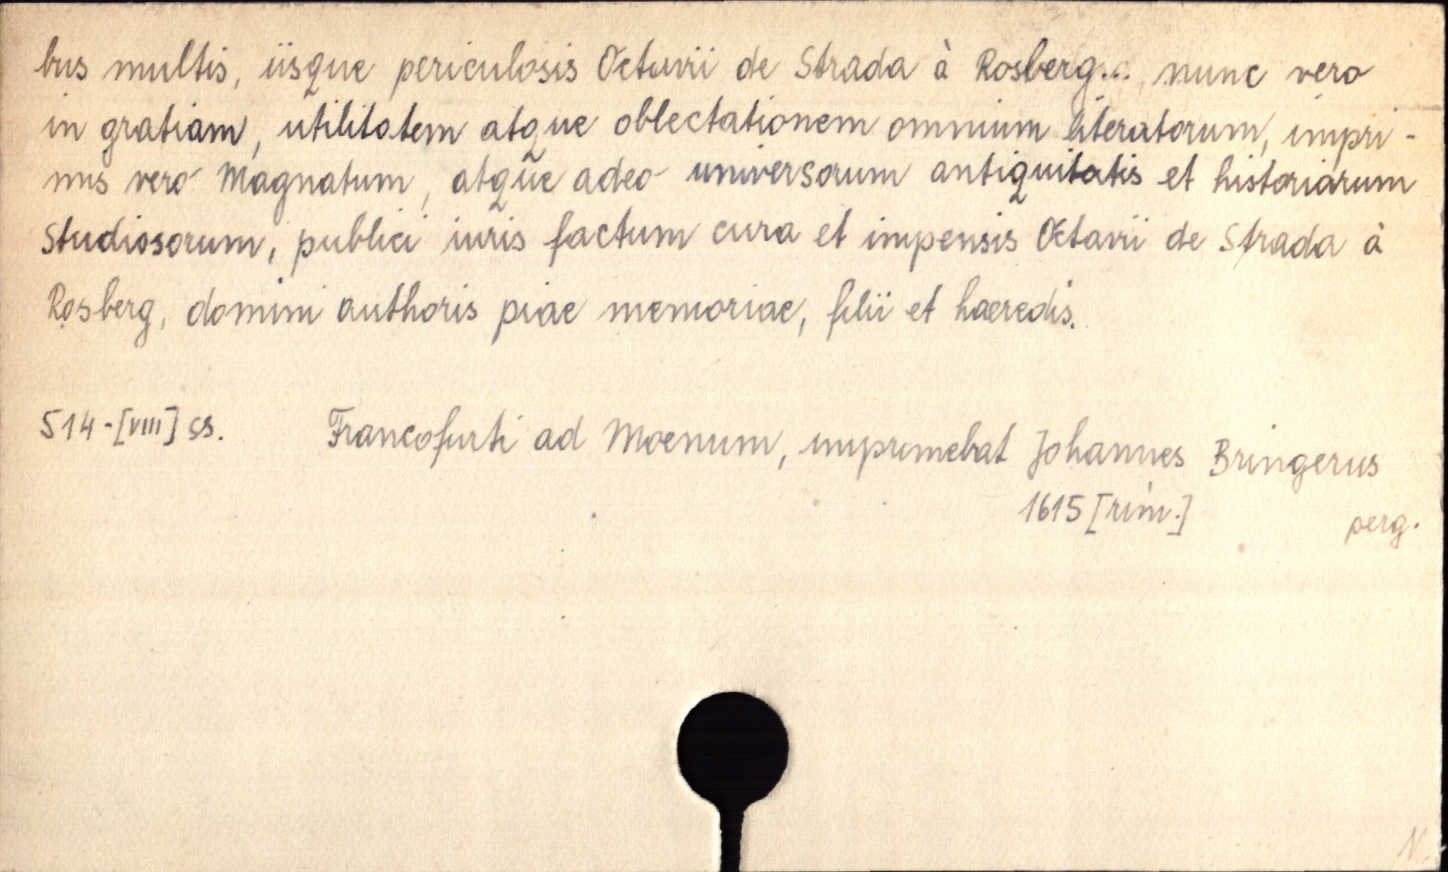 bus multis, iisque periculosis Octavii de Strada à Rosberg..., nunc vero
in gratiam, utilitatem atque oblectationem omnium literatorum, impri-
mis vero Magnatum, atque adeo universorum antiquitatis et historiarum
studiosorum, publici iuris factum cura et impensis Octavii de Strada à
Rosberg, domini authoris piae memoriae, filii et haeredis.
514-[VIII] ss. Francofurti ad Moenum, imprimebat Johannes Bringerus
1615 [rím.] perg.
N.